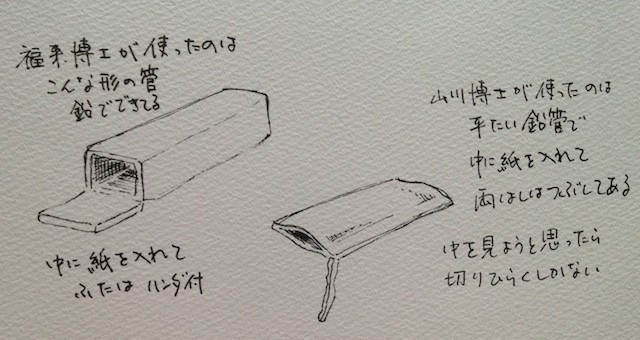 福来博士が使ったのは
こんな形の管
鉛でできてる
中に紙を入れて
ふたはハンダ付
山川博士が使ったのは
平たい鉛管で
中に紙を入れて
両はしはつぶしてある
中を見ようと思ったら
切りひらくしかない